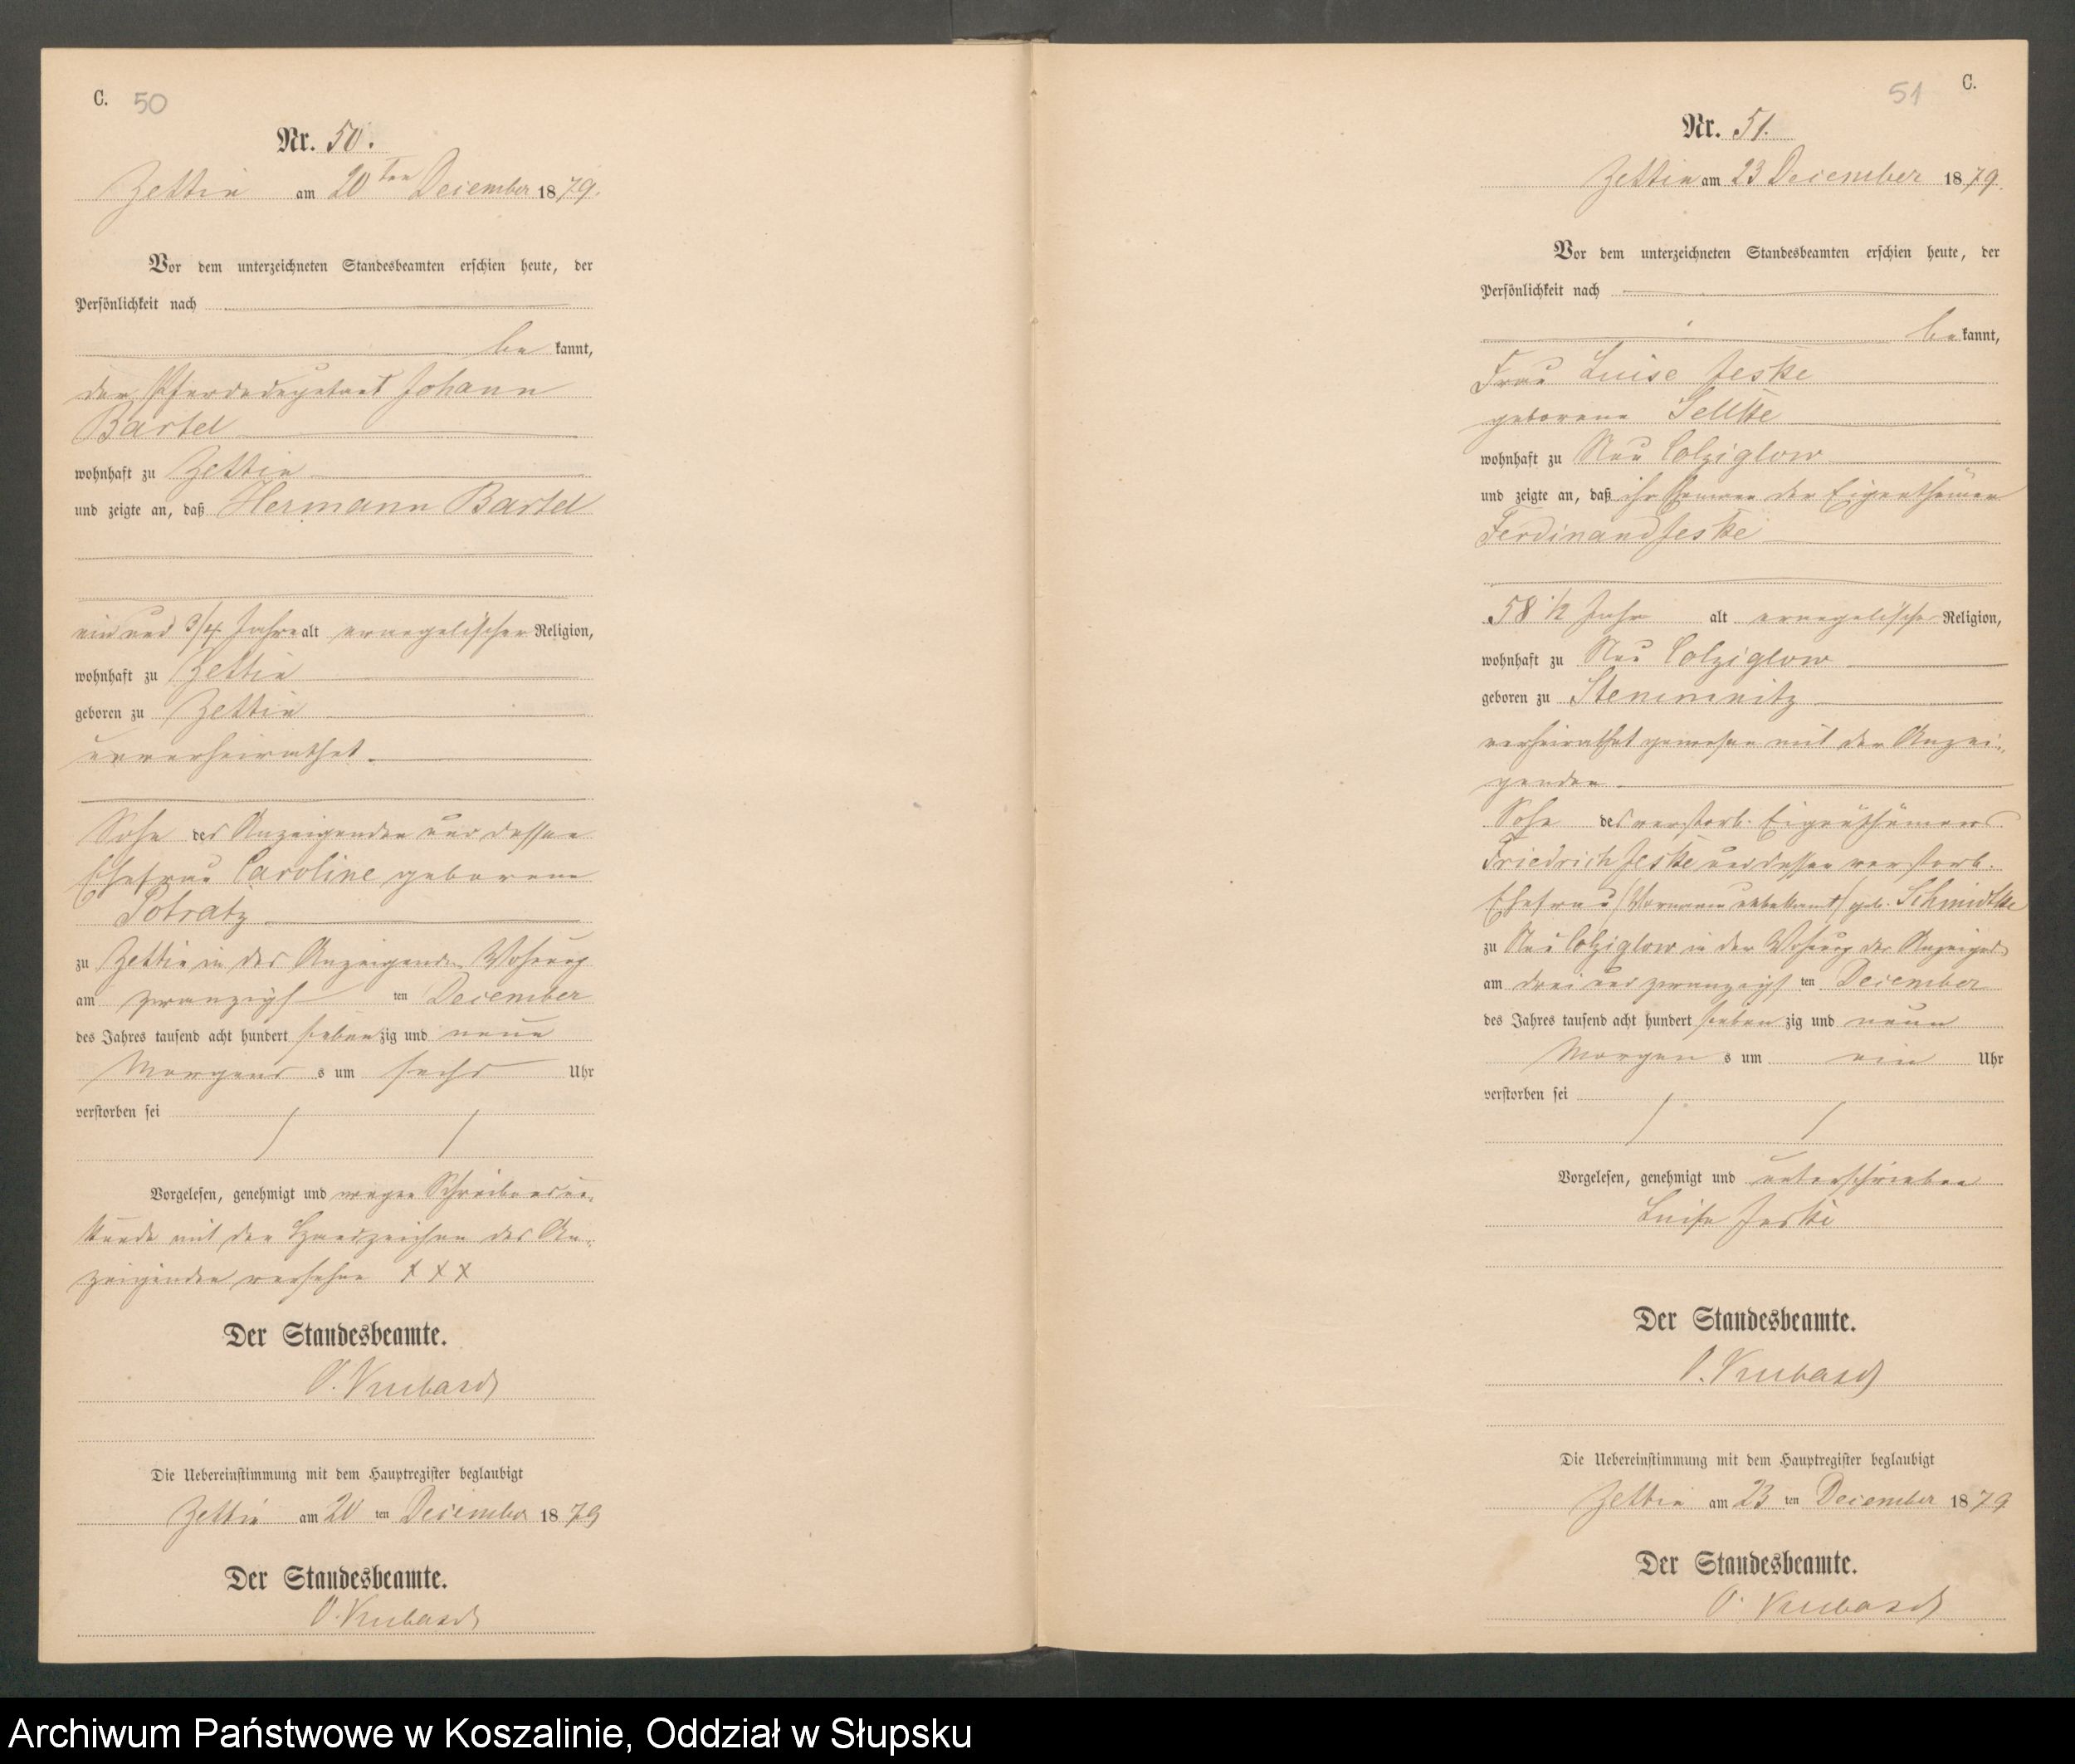 C. 50
Nr. 50.
Zettin am 20ten December 1879.
Vor dem unterzeichneten Standesbeamten erschien heute, der
Persönlichkeit nach
be kannt,
der Pferdedeputant Johann
Bartel
wohnhaft zu Zettin
und zeigte an, daß Hermann Bartel
ein und 3/4 Jahre alt evangelischer Religion,
wohnhaft zu Zettin
geboren zu Zettin
unverheirathet.
Sohn des Anzeigenden und dessen
Ehefrau Caroline geborene
Potratz
zu Zettin in des Anzeigenden Wohnung
am zwanzigsten December
des Jahres tausend acht hundert siebenzig und neun
Morgens s um sechs Uhr
verstorben sei
Vorgelesen, genehmigt und wegen Schreibensun-
kunde mit den Handzeichen des An-
zeigenden versehen + + +
Der Standesbeamte.
Die Uebereinstimmung mit dem Hauptregister beglaubigt
Zettin am 20 ten December 1879
Der Standesbeamte.
51 C.
Nr. 51.
Zettin am 23 December 1879.
Vor dem unterzeichneten Standesbeamten erschien heute, der
Persönlichkeit nach
be kannt,
Frau Luise Jeske
geborene Sellke
wohnhaft zu Neu Colziglow
und zeigte an, daß ihr der Eigenthümer
Ferdinand Jeske
58 1/2 Jahr alt evangelische Religion,
wohnhaft zu Neu Colziglow
geboren zu Stemmnitz
verheirathet gewesen mit der Anzei-
genden
Sohn des verstorb. Eigenthümers
Friedrich Jeske und dessen verstorb.
Ehefrau (Vornamen unbekannt) geb. Schmidtke
zu Neu Colziglow in der Wohnung der
am drei und zwanzigsten December
des Jahres tausend acht hundert siebenzig und neun
Morgen s um ein Uhr
verstorben sei
Vorgelesen, genehmigt und unterschrieben
Luise Jeske
Der Standesbeamte.
Die Uebereinstimmung mit dem Hauptregister beglaubigt
Zettin am 23 ten December 1879
Der Standesbeamte.
Archiwum Państwowe w Koszalinie, Oddział w Słupsku